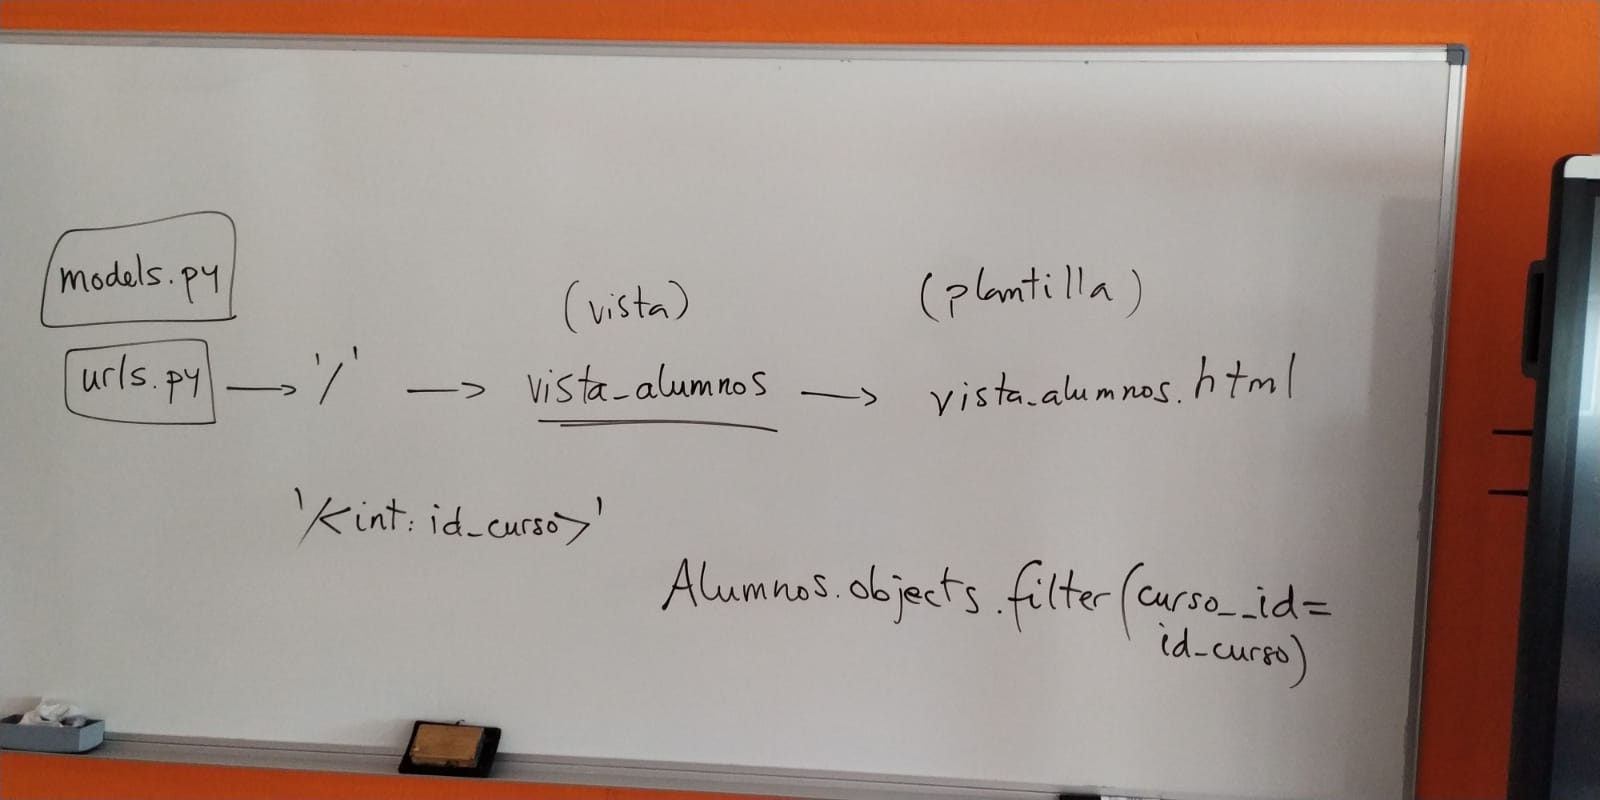 models.py
(vista)
(plantilla)
urls.py → '/' → vista_alumnos → vista_alumnos.html
'/<int:id_curso>'
Alumnos.objects.filter(curso__id=
id_curso)